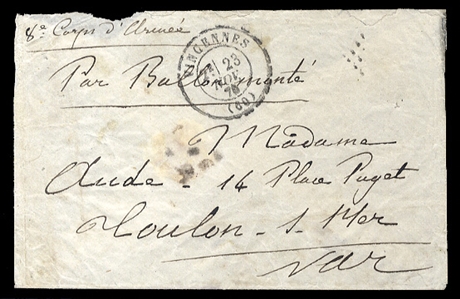 8e Corps d'Armée
VINCENNES
23
NOV.
70
(60)
Par Ballon monté
Madame
Aude - 14 Place Puget
Toulon-s-Mer
Var